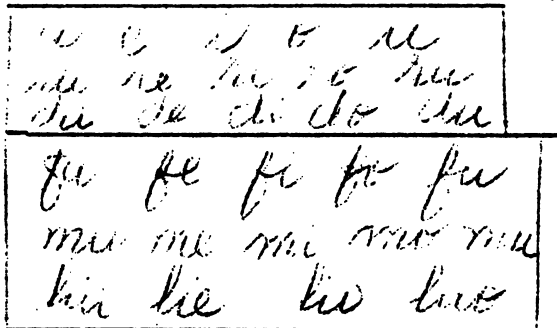 a e i o u
ra re ri ro ru
da de di do du
fa fe fi fo fu
ma me mi mo mu
hia hie hio